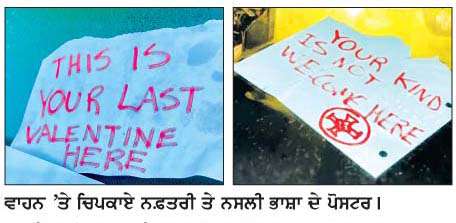 THIS IS
YOUR LAST
VALENTINE
HERE
YOUR KIND
IS NOT
WELCOME HERE
ਵਾਹਨ ’ਤੇ ਚਿਪਕਾਏ ਨ.ਫਤਰੀ ਤੇ ਨਸਲੀ ਭਾਸ਼ਾ ਦੇ ਪੋਸਟਰ।